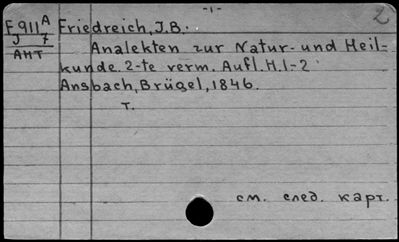 -1-
2
F 911 A Friedreich, J.B.
J 7
Analekten zur Natur- und Heil=
АНТ
kunde. 2-te verm. Aufl. H.1-2
Ansbach, Brügel, 1846.
т.
см. след. карт.